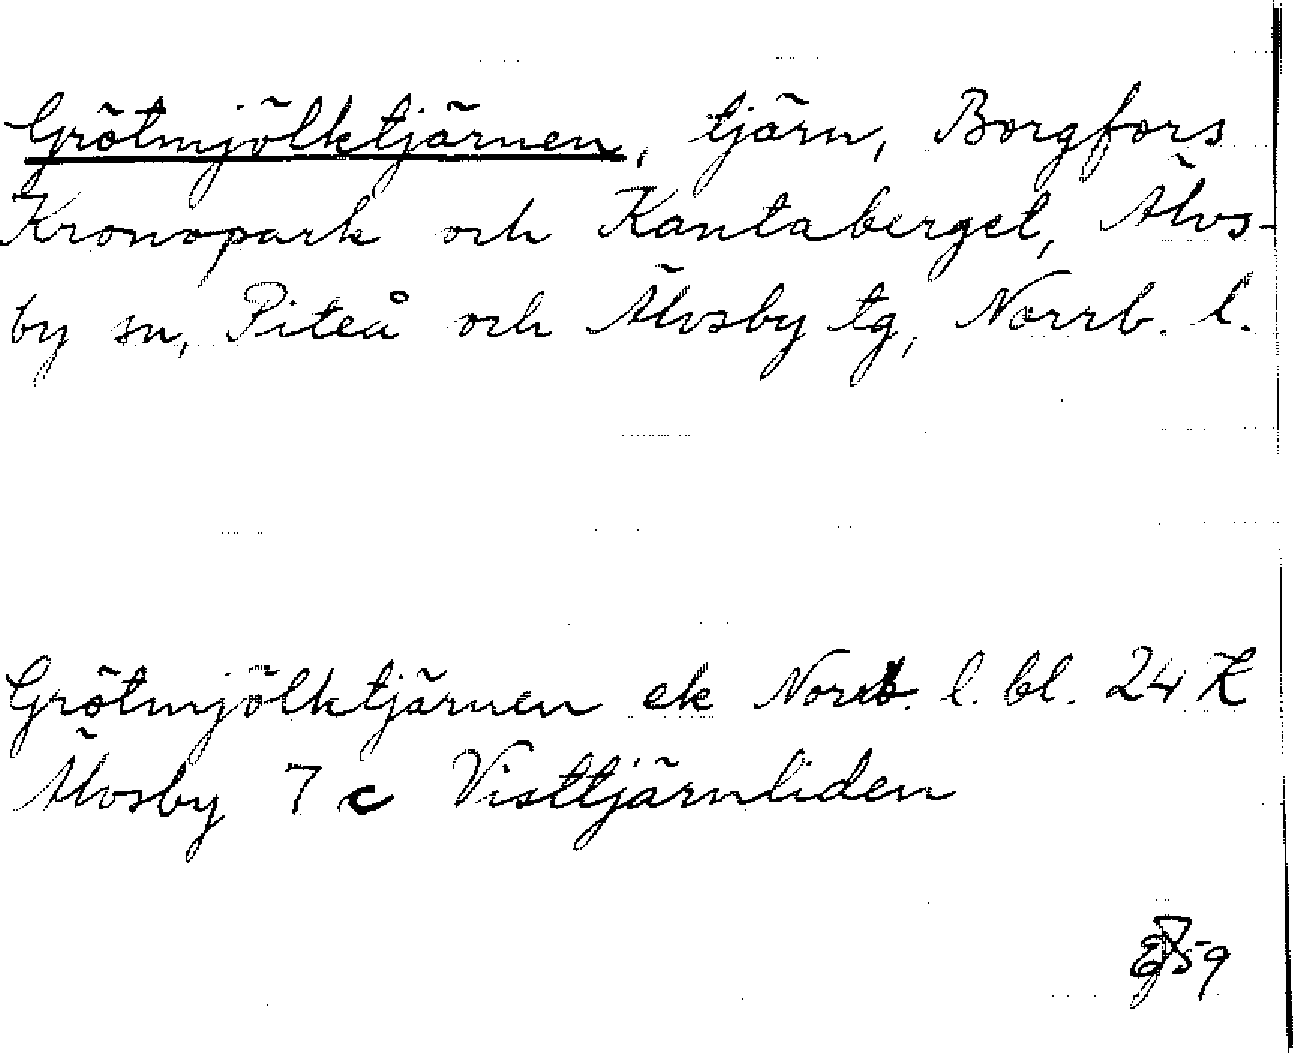 Grötmjölktjärnen, tjärn, Borgfors
Kronopark och Kantaberget, Älvs-
by sn, Piteå och Älvsby tg, Norrb. l.
Grötmjölktjärnen ek Norrb. l. bl. 24 K
Älvsby 7 c Visttjärnliden
59